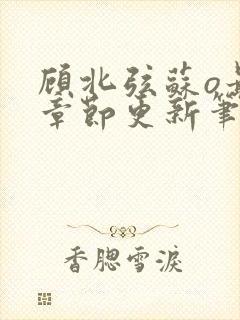 顾北弦蘇o
章節更新筆
香腮雪淚